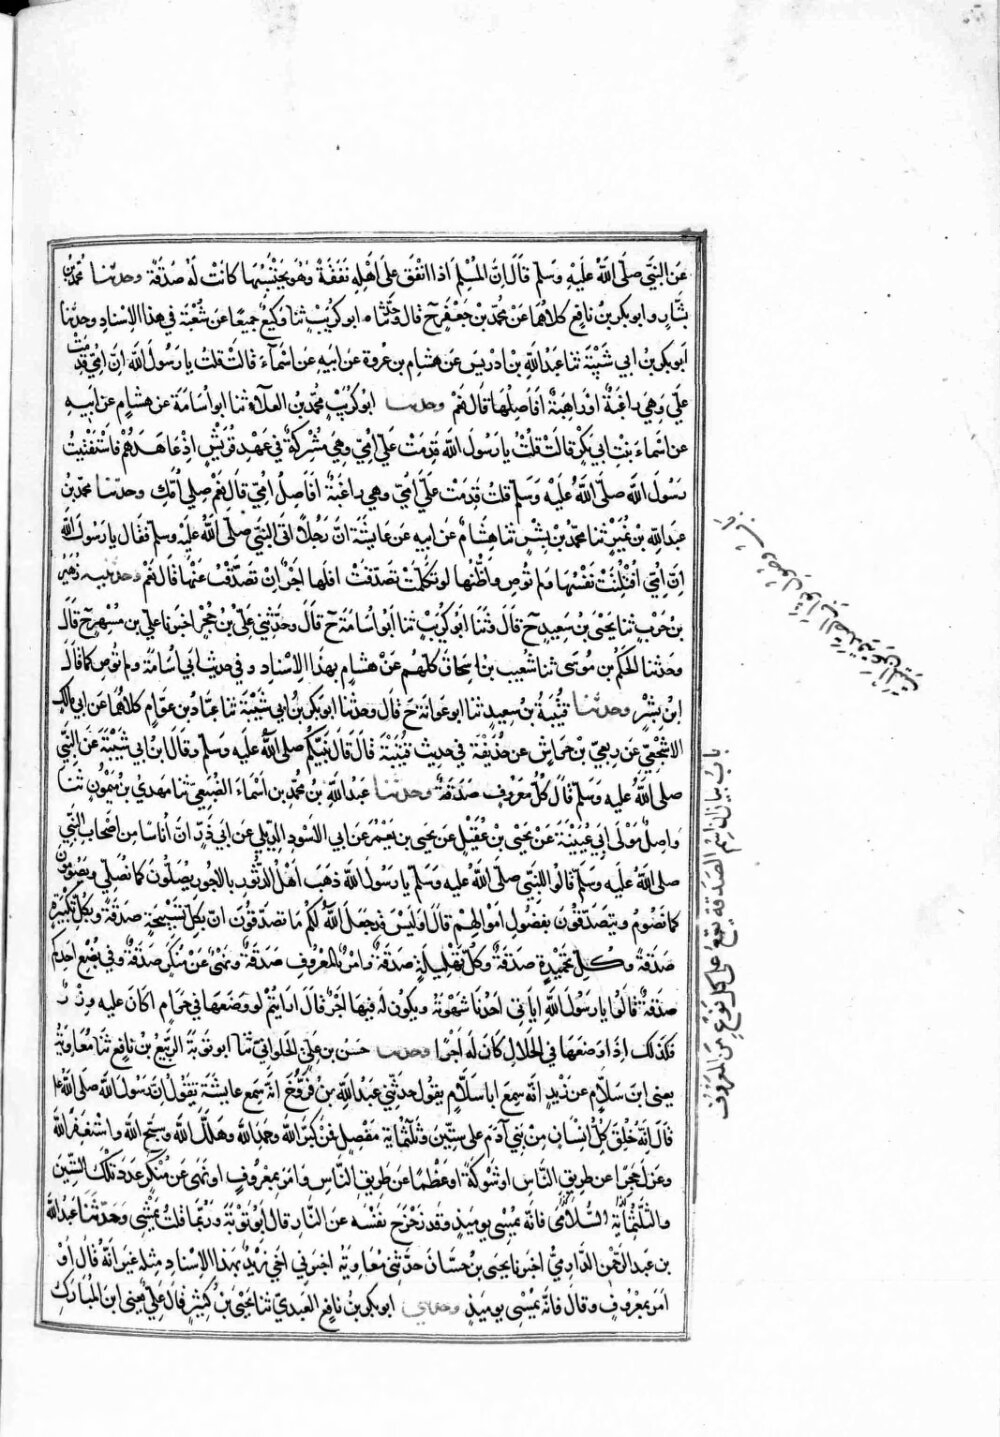 عَن النَّبِيِّ صَلَّى اللهُ عَلَيْهِ وَسَلَّم قَالَ اِنَّ المُسْلِمَ اذا انفَقَ عَلَى اَهْلِهِ نَفَقَةً وَهُوَ يَحْتَسِبُهَا كانَتْ لَهُ صَدَقَةً وحدثنا مُحَمَّدُ بْنُ
بَشَّارٍ وابو بكرِ بنُ نافِعٍ كلاهُمَا عَنْ مُحَمَّدِ بْنِ جَعْفَرٍ ح قال وحَدَّثنَاه ابو كُرَيْبٍ ثنا وَكِيْعٌ جَمِيعًا عَن شُعْبَةَ فِي هذا الاِسْنادِ وحدثنا
اَبو بكرِ بنُ ابي شَيْبَةَ ثنا عَبدُ اللهِ بْنُ ادريسَ عَن هشامِ بن عُروةَ عَن ابيهِ عَن اسْمَآءَ قَالَتْ قلتُ يا رَسُولَ الله اِنَّ اُمِّي قَدِمَتْ
عَلَيَّ وَهِيَ راغِبَةٌ اوْ راهِبَةٌ افَاَصِلُهَا قَالَ نَعَمْ وحدثنا ابو كُرَيْبٍ مُحَمَّدُ بن العَلاَءِ ثنا ابو اُسَامَةَ عَن هشامٍ عَن ابيهِ
عَن اسْماءَ بنتِ ابي بَكْرٍ قالَتْ قلْتُ يا رَسُولَ اللهِ قَدِمَتْ عَلَيَّ اُمِّي وهِيَ مُشْرِكَةٌ فِي عَهْدِ قُرَيْشٍ اِذْ عَاهَدَهُمْ فَاسْتَفْتَيْتُ
رَسُولَ الله صَلَّى اللَّهُ عَلَيْهِ وَسَلَّمَ قلتُ قَدِمَتْ عَلَيَّ اُمِّي وهي راغِبَةٌ افَاَصِلُ اُمِّي قَالَ نَعَمْ صِلِي اُمَّكِ وحدّثنا محمّد بن
عبدِ اللهِ بنِ نُمَيْرٍ ثنا محمدُ بن بِشْرٍ ثنا هِشَامٌ عَن ابيهِ عَن عايشَةَ اَنَّ رَجُلاً اَتَى النَّبِيَّ صَلَّى اللَّهُ عَلَيْهِ وسلم فَقَالَ يا رَسُولَ اللهِ
اِنَّ اُمِّيَ افْتُلِتَتْ نَفْسُهَا وَلم تُوصِ واَظُنُّها لو تَكَلَّمَتْ تَصَدَّقَتْ افَلَهَا اَجْرٌ اِنْ تَصَدَّقْتُ عَنْهَا قَالَ نَعَمْ وحدثنيه زُهَيْرُ
بن حَرْبٍ ثنا يَحيَى بنُ سَعِيدٍ ح قَالَ وَثَنَا ابُو كُرَيْبٍ ثنا ابُو اُسَامَةَ ح قَالَ وحَدَّثَنِي عَلِيُّ بْنُ حُجْرٍ اخبَرَنا عَلِيُّ بن مُسْهِرٍ ح قَالَ
وحَدثنا الحَكَمُ بن مُوسَى ثنا شُعَيبُ بن اسحاقَ كُلّهُمْ عَنْ هشامٍ بهذا الاِسْنادِ وفي حديثِ ابي اُسَامَةَ ولم توصِ كما قالَ
ابْنُ بِشْرٍ وحدثنا قُتَيْبَةُ بن سعِيدٍ ثنا ابو عَوانَةَ ح قال وحدثنا ابو بكر بن ابي شَيْبَةَ ثنا عَبَّادُ بن عَوَّامٍ كلاهُمَا عَن ابي مالكٍ
الاشجعيِّ عَن رِبْعِيِّ بن حِرَاشٍ عَن حُذَيْفَةَ فِي حديث قُتَيْبَةَ قَالَ قَالَ نَبِيُّكُم صلى اللهُ عَلَيه وَسَلم وقالَ ابنُ ابي شَيْبَةَ عَنِ النَّبِيِّ
صلى اللَّهُ عَليه وَسَلَّم قَالَ كُلُّ مَعْرُوفٍ صَدَقَةٌ وحدثنا عبدُ اللهِ بن محمّد بن اَسْمَاءَ الضُّبَعِيُّ ثنا مَهدِيُّ بن مَيْمُونٍ ثنا
وَاصِلٌ مَوْلَى اَبِي عُيَيْنَةَ عَنْ يَحْيَى بن عُقَيْلٍ عَن يحيى بن يَعْمُرَ عَن ابي الاَسْوَدِ الدِّيْلِي عَن ابي ذَرٍّ اَنَّ اُنَاسًا مِن اَصْحَابِ النَّبِيِّ
صلى اللَّهُ عَلَيه وَسَلَّمَ قَالُوا للنَّبِيِّ صَلَّى اللَّهُ عليه وَسَلَّمَ يا رَسُولَ اللهِ ذَهَبَ اَهْلُ الدُّثُورِ بالاُجُورِ يُصَلُّونَ كَمَا نُصَلِّي ويَصُومُونَ
كما نَصُومُ ويَتَصَدَّقُونَ بفضولِ امْوَالِهِمْ قَالَ اوَلَيْسَ قد جَعَلَ اللهُ لَكُمْ مَا تَصَدَّقُونَ انّ بِكُلِّ تَسْبِيْحَةٍ صَدَقَةً وبِكُلِّ تَكْبِيْرَةٍ
صَدَقَةً وكلِّ تَحْمِيْدَةٍ صدَقَةً وكُلِّ تَهْلِيلَةٍ صدَقَةً واَمْرٌ بالمَعْرُوفِ صَدَقَةٌ ونَهْيٌ عَنْ مُنْكَرٍ صَدَقَةٌ وَفي بُضْعِ اَحدِكم
صَدَقَةٌ قَالُوا يا رَسُولَ اللهِ اَيَأتِي اَحَدُنَا شَهْوَتَهُ ويَكُونُ لَهُ فِيهَا اَجْرٌ قَالَ ارَايْتُمْ لَو وَضَعَهَا فِي حَرَامٍ اكانَ عليه وِزْرٌ
فكذلك اِذَا وَضَعَهَا فِي الحَلالِ كَانَ لَهُ اَجْرًا وحدثنا حَسَنُ بن عَلِيٍّ الحُلوانيُّ ثنا ابو تَوْبَةَ الرَّبِيعُ بن نافِعٍ ثنا مُعَاوِيَةُ
يعنى ابنَ سَلَّامٍ عَن زَيْدٍ اَنَّه سمِعَ ابا سَلَّامٍ يقولُ حدثني عَبْدُ اللهِ بنُ فَرُّوْخَ انَّهُ سَمِعَ عايشَةَ تَقُولُ اِنَّ رَسُولَ الله صلى اللهُ
قَالَ اِنَّهُ خُلِقَ كُلُّ اِنسَانٍ مِنْ بَنِي آدَمَ على سِتِّينَ وثَلثمِائَةِ مَفْصِلٍ فَمَنْ كبَّرَ اللهَ وحمِدَ اللهَ وهَلَّلَ اللهَ وسَبَّحَ اللهَ واسْتَغْفَرَ اللهَ
وعزلَ حَجَرًا عَن طريقِ النَّاسِ او شَوْكَةً او عَظْمًا عَن طَرِيقِ النَّاسِ وَاَمَرَ بمَعْرُوفٍ او نَهَى عَن مُنْكَرٍ عَدَدَ تلك السِّتِّينَ
والثَّلثِمائَةِ السُّلَامَى فانَّه يُمْسِي يومَيذٍ وقد زَحْزَحَ نَفْسَه عَن النَّارِ قال ابُو تَوْبَةَ ورُبَّمَا قَالَ يَمْشِي وحَدثنا عَبْدُ اللهِ
بن عَبد الرَّحْمنِ الدَّارِمِيُّ اخبرنا يحيى بن حسَّانَ حَدَّثَنِي مُعَاوِيَةُ اخبرني اخي زيدٌ بهَذا الاِسْنَادِ مِثْلَه غيرَ انَّهُ قَالَ اوْ
اَمَرَ بمعْرُوفٍ وقال فَانَّهُ يُمْسِي يومَيذٍ وحدثني ابو بكرِ بنُ نافِعٍ العبديُّ ثنا يَحْيَى بْنُ كَثِيْرٍ ثنا عَلِيٌّ يعنِي ابن المُبَارَكِ
بابُ بيان ان اسم الصَدَقة يقع على كل نَوْعٍ مِن المَعْرُوف